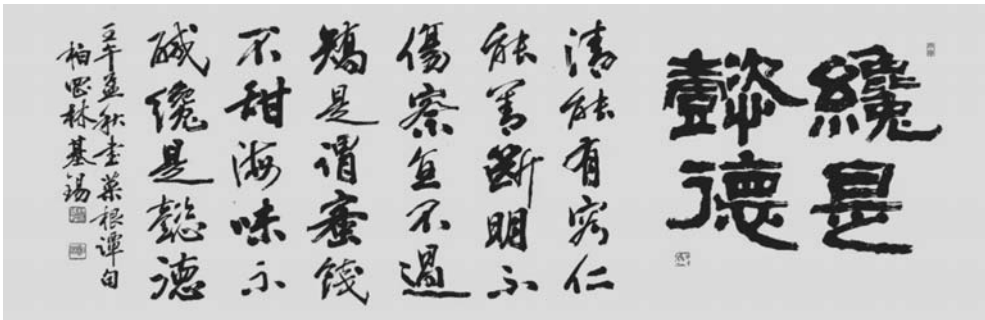 纔是
懿德
清能有容仁
能善斷明不
傷察直不過
矯是謂蜜餞
不甜海味不
醎纔是懿德
壬午孟秋書菜根譚句
柏林基錫